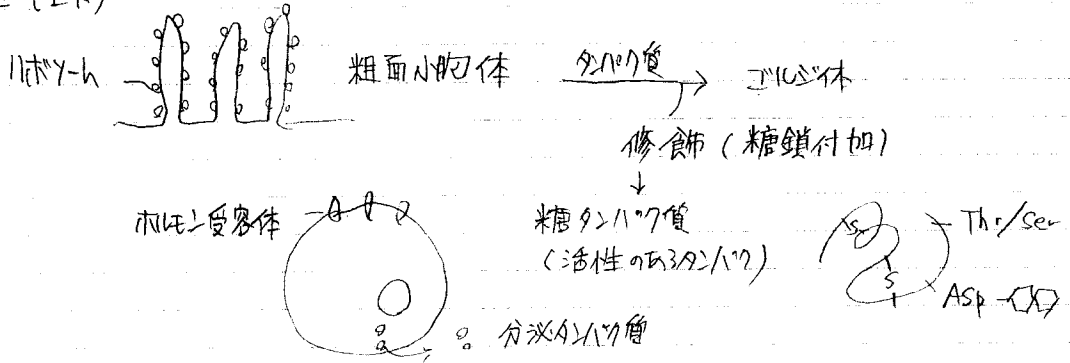 リボソーム 粗面小胞体 タンパク質 ゴルジ体
修飾(糖鎖付加)
ホルモン受容体 糖タンパク質 Thr/Ser
(活性のあるタンパク) S
S
Asp
分泌タンパク質